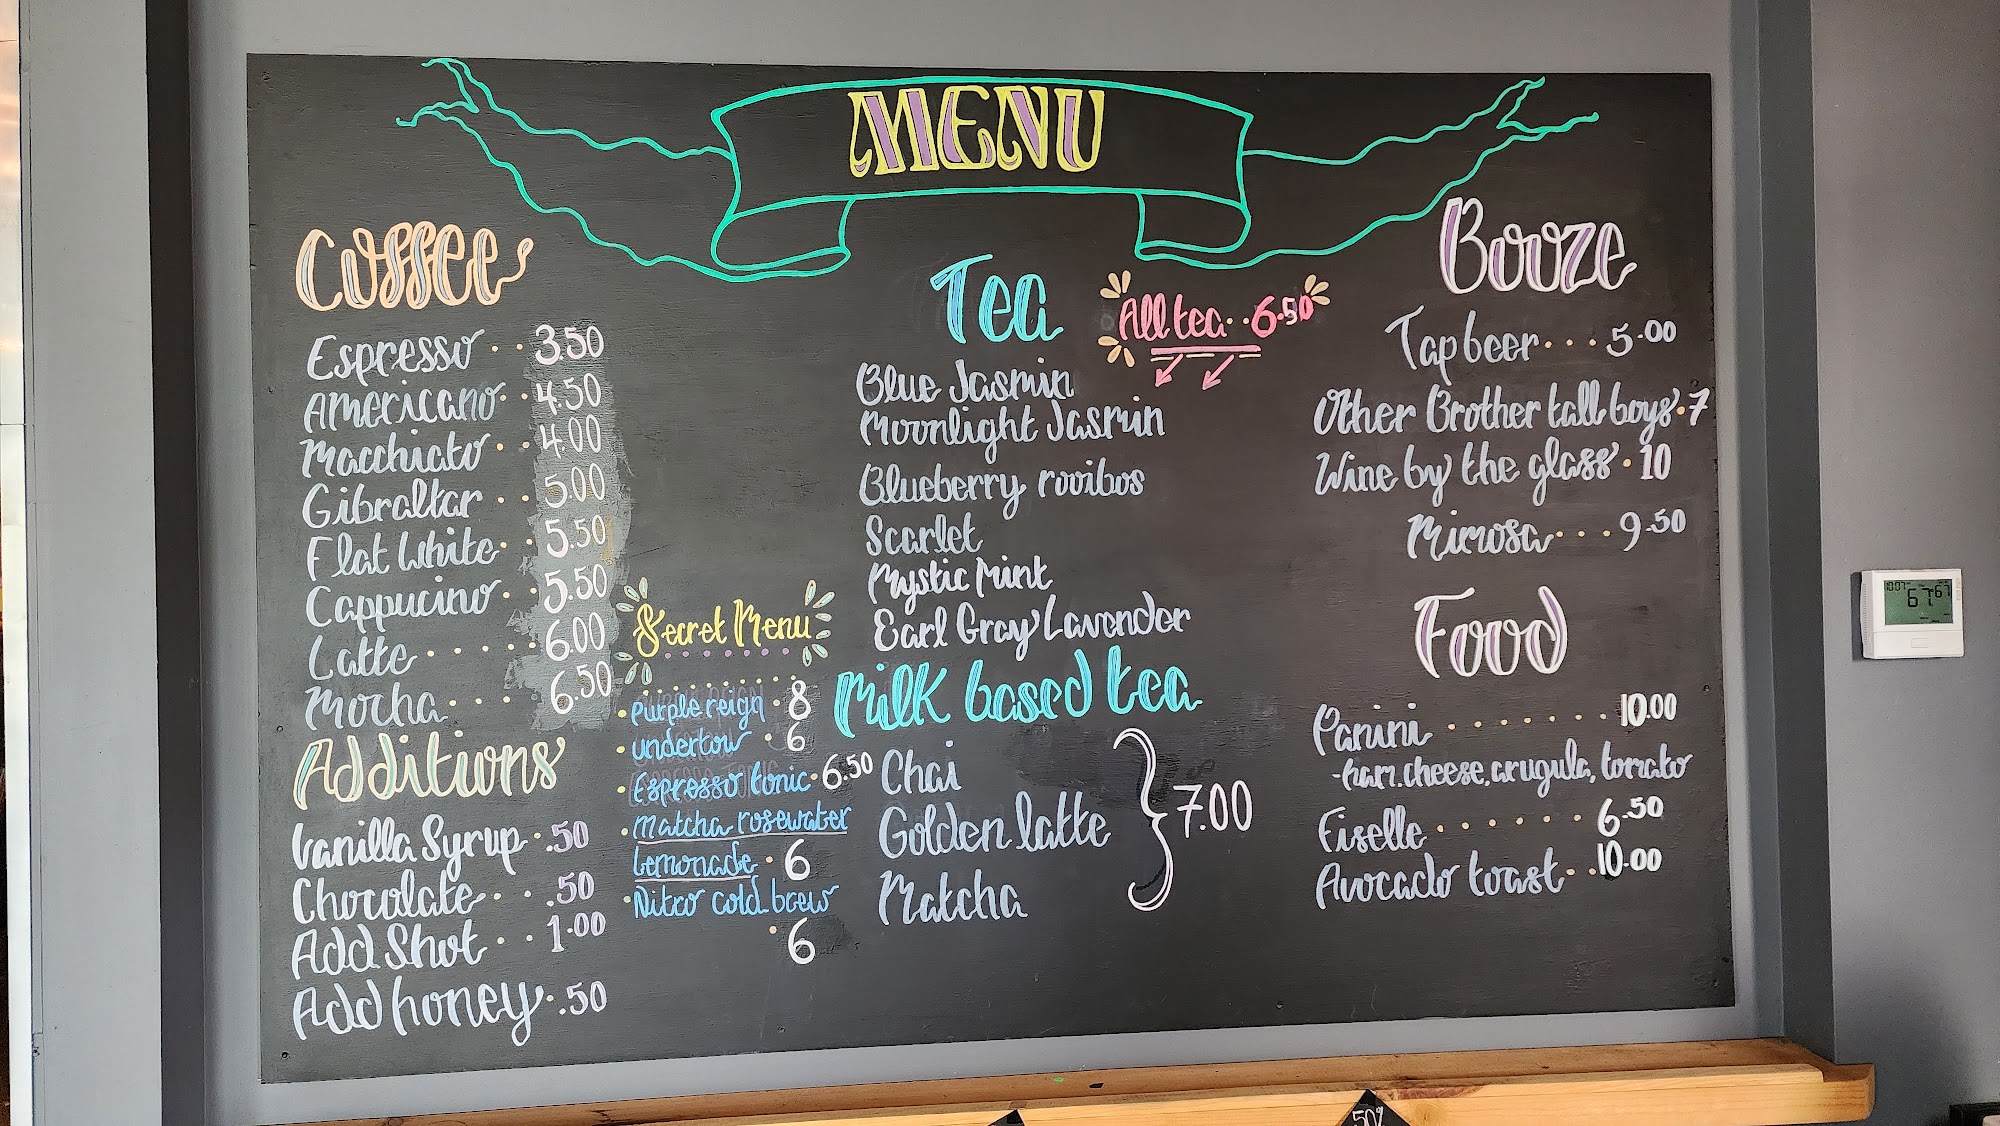 MENU
Coffee
Espresso . . 3.50
Americano . . 4.50
Macchiato . . 4.00
Gibraltar . . 5.00
Flat White . . 5.50
Cappucino . . 5.50
Latte . . . . . 6.00
Mocha . . . . 6.50
Additions
Vanilla Syrup . .50
Chocolate . . .50
Add Shot . . 1.00
Add honey . .50
Secret Menu
Purple reign . 8
undertow . 6
Espresso tonic . 6.50
Matcha rosewater
Lemonade . 6
Nitro cold brew
. 6
Tea
All tea . . 6.50
Blue Jasmin
Moonlight Jasmin
Blueberry rooibos
Scarlet
Mystic Mint
Earl Gray Lavender
Milk based tea
Chai
Golden latte
Matcha
7.00
Booze
Tap beer . . . 5.00
Other Brother tall boys . 7
Wine by the glass . 10
Mimosa . . . 9.50
Food
Panini . . . . . . . 10.00
-ham, cheese, arugula, tomato
Fiselle . . . . . . 6.50
Avocado toast . . 10.00
67
50%